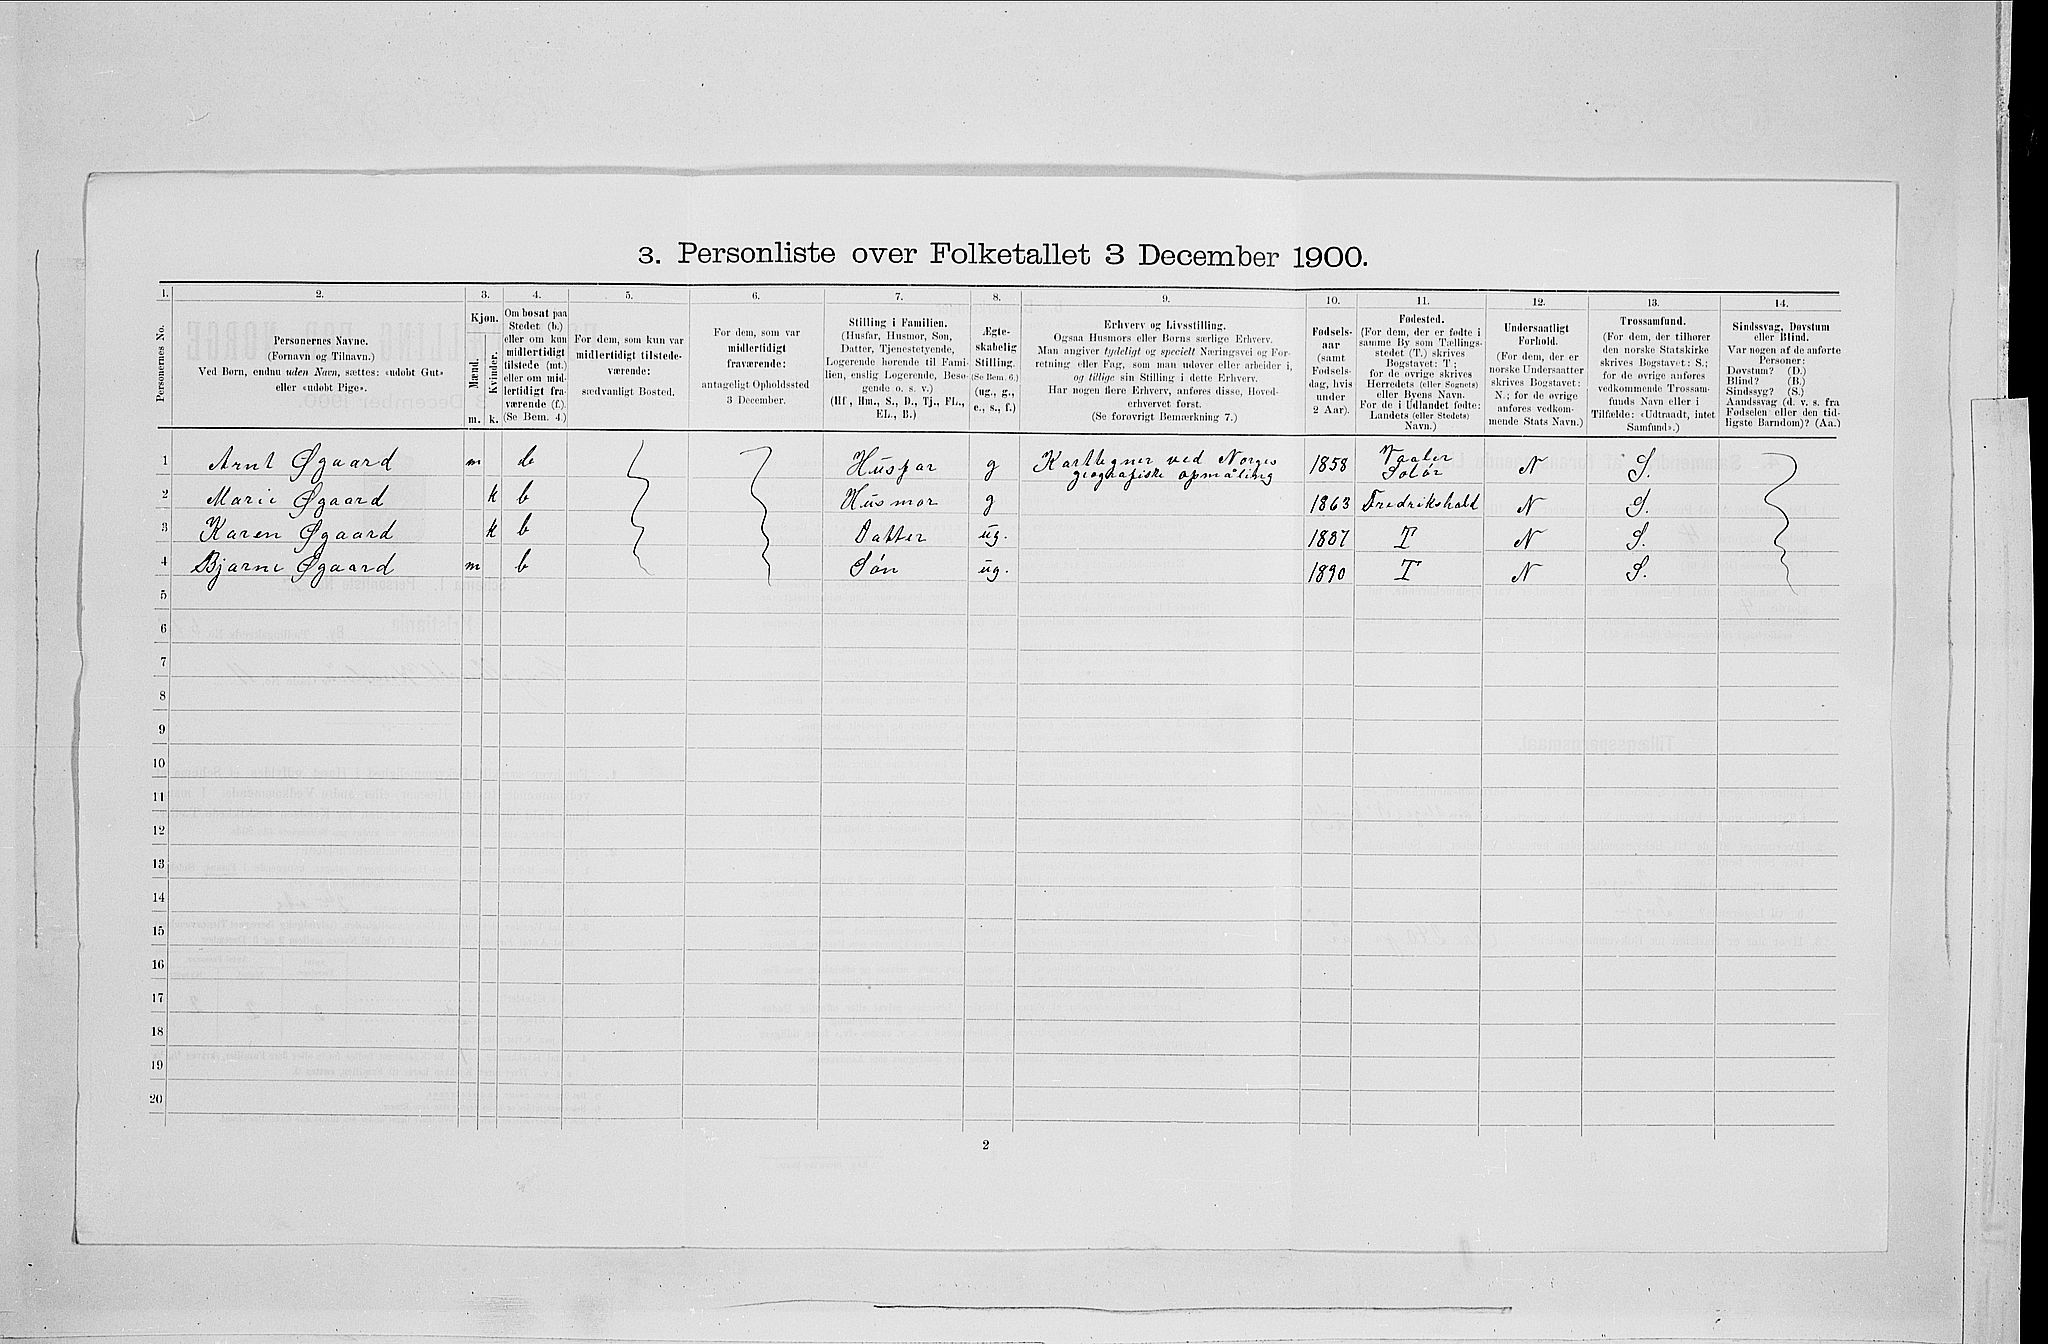 3. Personliste over Folketallet 3 December 1900.
1. 2. 3. 4. 5. 6. 7. 8. 9. 10. 11. 12. 13. 14.
Personernes No.
Personernes Navne.
(Fornavn og Tilnavn.)
Ved Børn, endnu uden Navn, sættes: «udøbt Gut»
eller «udøbt Pige».
Kjøn.
Mænd.
Kvinder.
m. k.
Om bosat paa
Stedet (b.)
eller om kun
midlertidigt
tilstede (mt.)
eller om mid-
lertidigt fra-
værende (f.)
(Se Bem. 4.)
For dem, som kun var
midlertidigt tilstede-
værende:
sædvanligt Bosted.
For dem, som var
midlertidigt
fraværende:
antageligt Opholdssted
3 December.
Stilling i Familien.
(Husfar, Husmor, Søn,
Datter, Tjenestetyende,
Logerende hørende til Fami-
lien, enslig Logerende, Besø-
gende o. s. v.)
(Hf., Hm., S., D., Tj., FL.,
EL., B.)
Ægte-
skabelig
Stilling.
(Se Bem. 6.)
(ug., g.,
e., s., f.)
Erhverv og Livsstilling.
Ogsaa Husmors eller Børns særlige Erhverv.
Man angiver tydeligt og specielt Næringsvei og For-
retning eller Fag, som man udøver eller arbeider i,
og tillige sin Stilling i dette Erhverv.
Har nogen flere Erhverv, anføres disse, Hoved-
erhvervet først.
(Se forøvrigt Bemærkning 7.)
Fødsels-
aar
(samt
Fødsels-
dag, hvis
under
2 Aar).
Fødested.
(For dem, der er fødte i
samme By som Tællings-
stedet (T.) skrives
Bogstavet: T;
for de øvrige skrives
Herredets (eller Sognets)
eller Byens Navn.
For de i Udlandet fødte:
Landets (eller Stedets)
Navn.)
Undersaatligt
Forhold.
(For dem, der er
norske Undersaatter
skrives Bogstavet:
N.; for de øvrige
anføres vedkom-
mende Stats Navn.)
Trossamfund.
(For dem, der tilhører
den norske Statskirke
skrives Bogstavet: S.;
for de øvrige anføres
vedkommende Trossam-
funds Navn eller i
Tilfælde: «Udtraadt, intet
Samfund».)
Sindssvag, Døvstum
eller Blind.
Var nogen af de anførte
Personer:
Døvstum? (D.)
Blind? (B.)
Sindssyg? (S.)
Aandssvag (d. v. s. fra
Fødselen eller den tid-
ligste Barndom)? (Aa.)
1 Arnt Øgaard m b Husfar g Karttegner ved Norges geografiske opmåling 1858 Vaaler Solør N S.
2 Marie Øgaard k b Husmor g 1863 Fredrikshald N S.
3 Karen Øgaard k b Datter ug. 1887 T N S.
4 Bjarne Øgaard m b Søn ug. 1890 T N S.
5
6
7
8
9
10
11
12
13
14
15
16
17
18
19
20
2